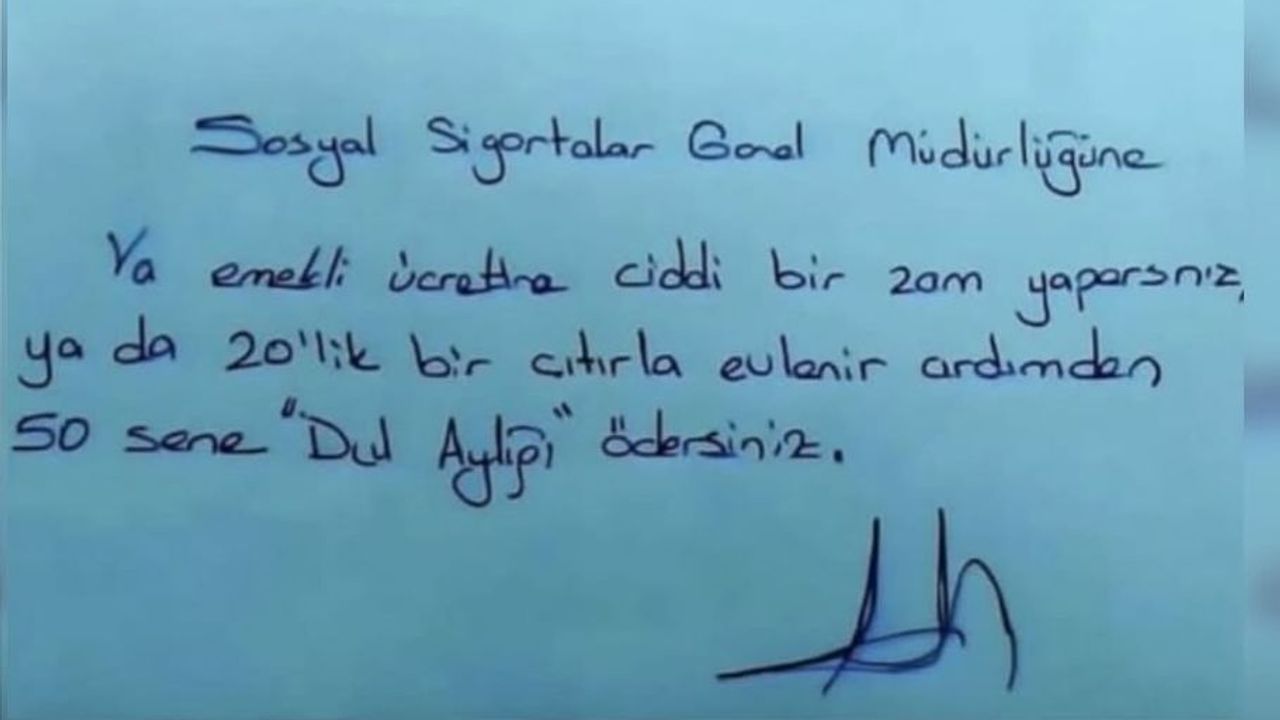 Sosyal Sigortalar Genel Müdürlüğüne
Ya emekli ücretine ciddi bir zam yaparsınız,
ya da 20'lik bir çıtırla evlenir ardımdan
50 sene "Dul Aylığı" ödersiniz.